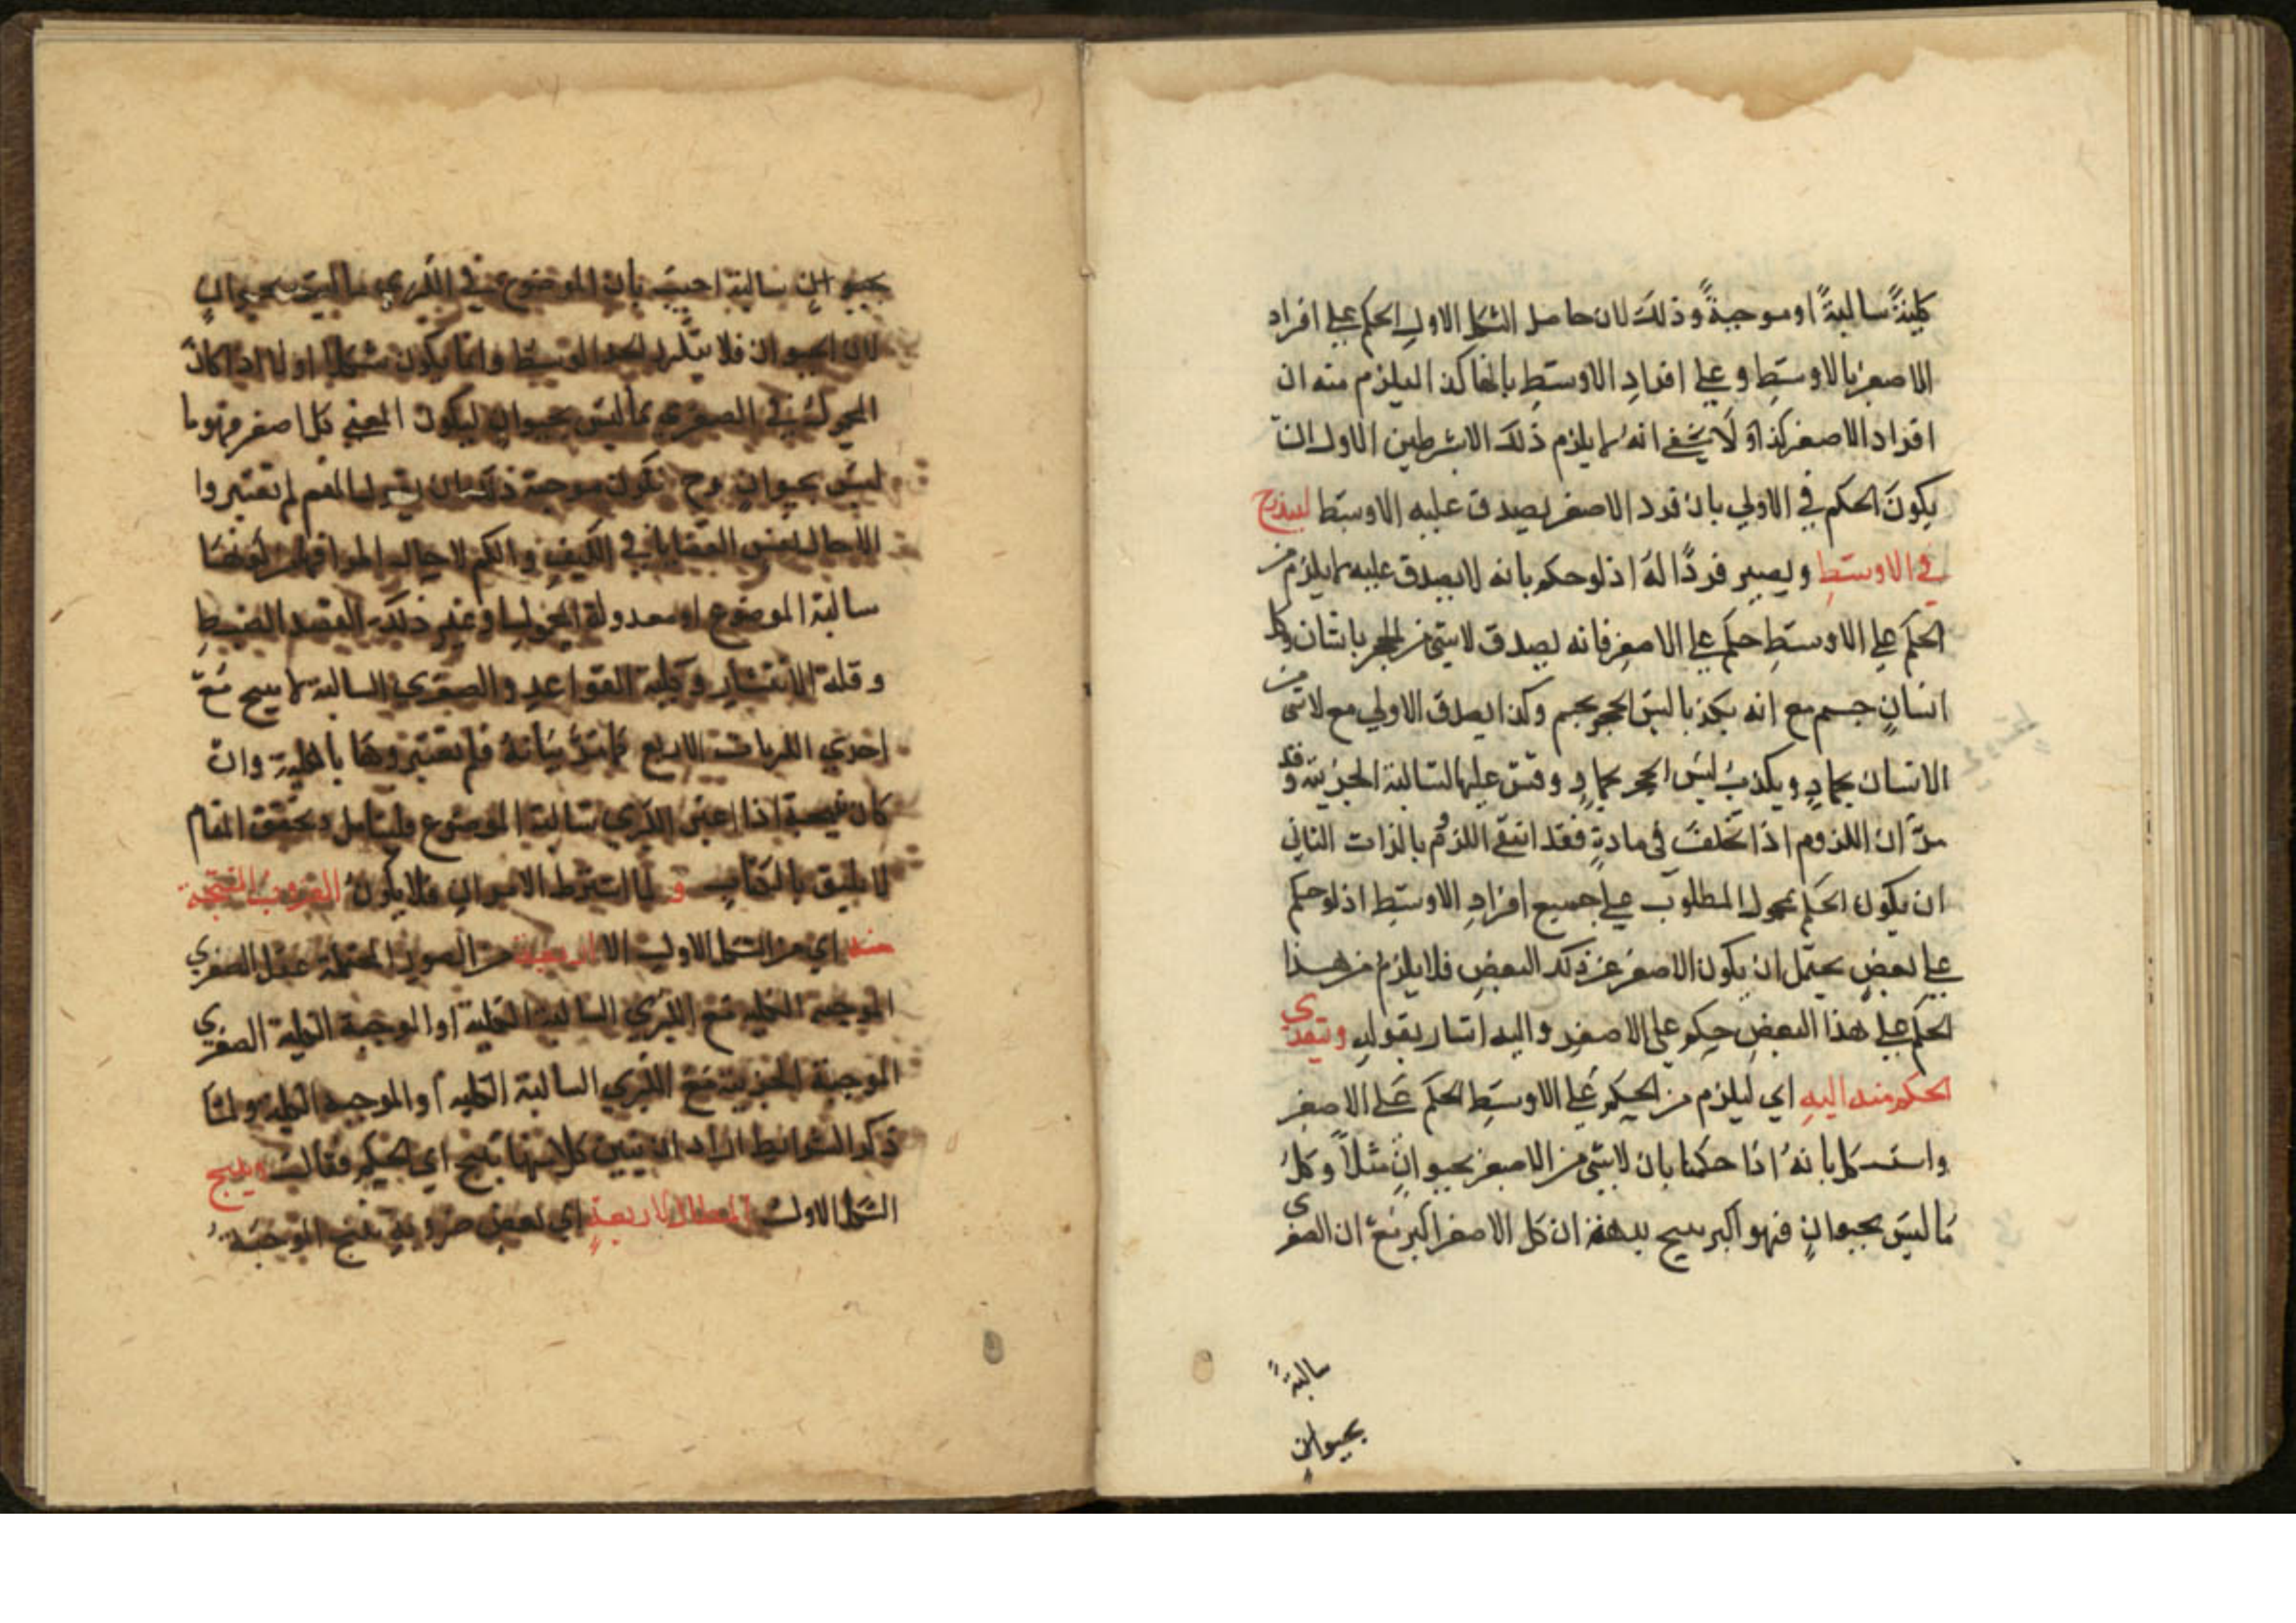 كليةً سالبةً او موجبةً وذلك لان حاصل الشكل الاول الحكم على افراد
الاصغر بالاوسط وعلى افراد الاوسط بانها كذا ليلزم منه ان
افراد الاصغر كذا ولا يخفى انه لم يلزم ذلك الا بشرطين الاول ان
يكون الحكم في الاولى بان فرد الاصغر يصدق عليه الاوسط ليندرج
في الاوسط ويصير فردًا له اذ لو حكم بانه لا يصدق عليه لم يلزم من
الحكم على الاوسط حكم على الاصغر فانه يصدق لا شئ من الحجر بانسان وكل
انسان جسم مع انه يكذب ليس الحجر بجسم وكذا يصدق الاولى مع لا شئ من
الانسان بجماد ويكذب ليس الحجر بجماد وقس عليها السالبة الجزئية وقد
مرّ ان اللزوم اذا تخلف في مادةٍ فقد انتفى اللزوم بالذات الثاني
ان يكون الحكم بمحمول المطلوب على جميع افراد الاوسط اذ لو حكم
على بعض يحتمل ان يكون الاصغر غير ذلك البعض فلا يلزم من هذا
الحكم على هذا البعض حكم على الاصغر واليه اشار بقوله ويتعدى
الحكم منه اليه اي ليلزم من الحكم على الاوسط الحكم على الاصغر
واستشكل بانه اذا حكمنا بان لا شئ من الاصغر بحيوان مثلاً وكل
ما ليس بحيوان فهو اكبر ينتج بديهة ان كل الاصغر اكبر مع ان الصغرى
سالبةً
بحيوانٍ
بحيوان سالبة اجيب بان الموضوع في الكبرى ما ليس بحيوان
لان الحيوان فلا يتكرر الحد الوسط وانما يكون شكلا اولا اذا كان
المحمول في الصغرى ما ليس بحيوان ليكون المعنى كل اصغر فهو ما
ليس بحيوان وح تكون موجبة لم يعتبروا
الا حال نفس القضايا في الكيف والكم لا حال
سالبة الموضوع او معدولة المحمول وغير ذلك لقصد الضبط
وقلة الانتشار وكلية القواعد والصغرى السالبة لم ينتج مع
احدى الكبريات الاربع كما مرّ بيانه فلم يعتبروها بالكلية وان
كان اذا اعتبر الكبرى سالبة الموضوع فليتامل وتحقق المقام
لا يليق بالكتاب و لما اشترط الامران فلا يكون الضروب المنتجة
منه اي من الشكل الاول الا اربعة من الصور المحتملة عقلا الصغرى
الموجبة الكلية مع الكبرى السالبة الكلية او الموجبة الكلية الصغرى
الموجبة الجزئية مع الكبرى السالبة الكلية او الموجبة الكلية ولما
ذكر الشرائط اراد ان يبين كلا منها ينتج اي الحكم فقال وينتج
الشكل الاول المطالب الاربعة اي بعض ضروبه ينتج الموجبة